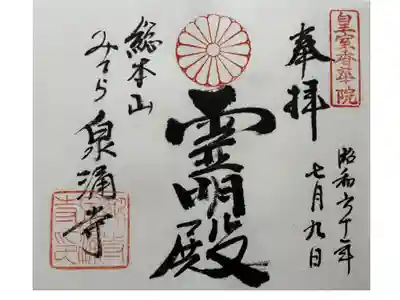 皇室香華院
奉拝
昭和六十一年
七月九日
霊明殿
総本山
みてら 泉涌寺